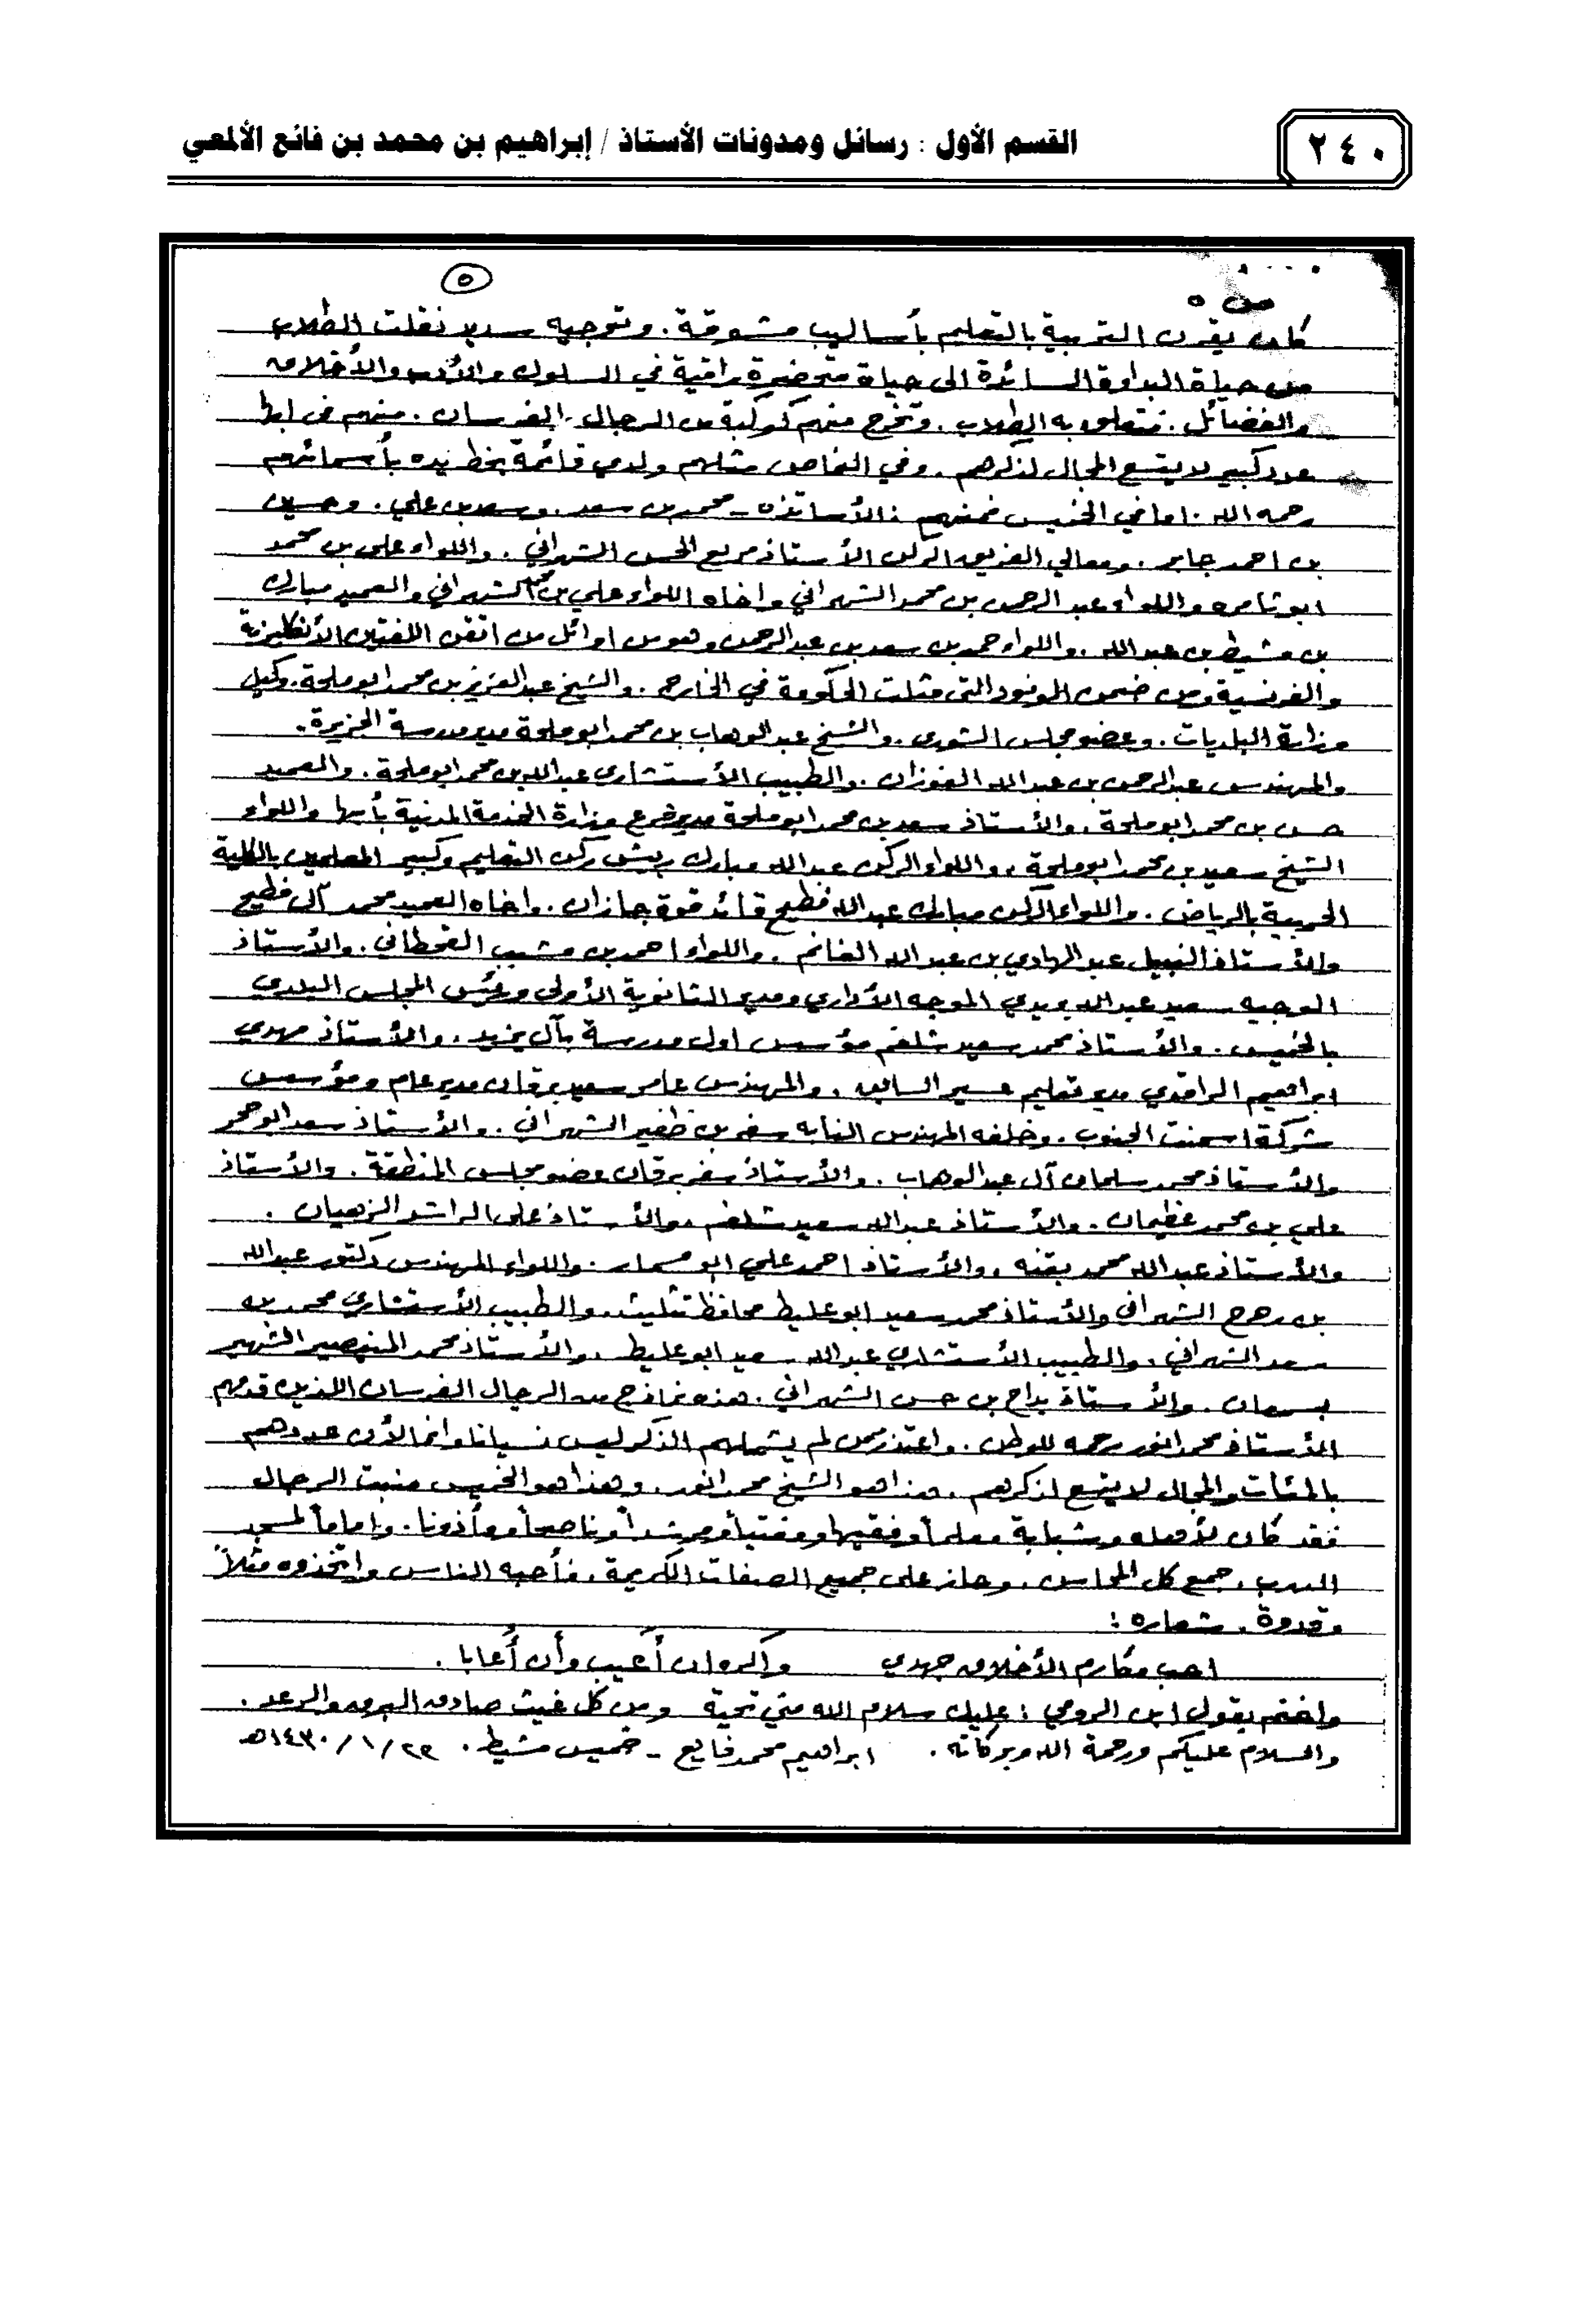 ٢٤٠
القسم الأول : رسائل ومدونات الأستاذ / إبراهيم بن محمد بن فائع الألمعي
٥
ص ٥
كان يقرن التربية بالتعليم بأساليب مشوقة . وتوجيه سديد نقلت الطلاب
من حياة البداوة السائدة الى حياة متحضرة راقية في السلوك والأدب والأخلاق
والفضائل . فتعلق به الطلاب . وتخرج منهم كوكبة من الرجال الفرسان . منهم في ابها
عدد كبير لا يتسع المجال لذكرهم . وفي النماص مثلهم ولدي قائمة بخط يده بأسمائهم
رحمه الله . اما في الخميس فمنهم : الأساتذه - محمد بن سعد . وسعد بن علي . وحسين
بن احمد جابر . ومعالي الفريق الركن الأستاذ مريع الحسن الشهراني . واللواء علي بن محمد
ابو ثامره واللواء عبد الرحمن بن محمد الشهراني واخاه اللواء علي بن محمد الشهراني والعميد مبارك
بن مشيط بن عبد الله . واللواء حمد بن سعد بن عبدالرحمن وهو من اوائل من اتقن اللغتين الأنكليزية
والفرنسية ومن ضمن الوفود التي مثلت الحكومة في الخارج . والشيخ عبدالعزيز بن محمد ابو ملحة . وكيل
وزارة البلديات . وعضو مجلس الشورى . والشيخ عبد الوهاب بن محمد ابو ملحة مدير مدرسة الجزيرة .
والمهندس عبد الرحمن بن عبد الله الفوزان . والطبيب الأستشاري عبدالله بن محمد ابو ملحة . والعميد
حسن بن محمد ابو ملحة . والأستاذ سعد بن محمد ابو ملحة مدير فرع وزارة الخدمة المدنية بأبها واللواء
الشيخ سعيد بن محمد ابو ملحة . واللواء الركن عبد الله مبارك رييس ركن التعليم وكبير المعلمين بالكلية
الحربية بالرياض . واللواء الركن مبارك عبد الله فطيح قائد قوة جازان . واخاه العميد محمد آل فطيح
والأستاذ النبيل عبد الهادي بن عبد الله الغانم . واللواء احمد بن مشبب القحطاني . والأستاذ
الوجيه سعيد عبد الله بريدي الموجه الأداري ومدير الثانوية الأولى ورئيس المجلس البلدي
بالخميس . والأستاذ محمد سعيد شلغم مؤسس اول مدرسة بآل يزيد . والأستاذ مهدي
ابراهيم الراقدي مدير تعليم عسير السابق . والمهندس عامر سعيد برقان مدير عام ومؤسس
شركة اسمنت الجنوب . وخلفه المهندس النابه سفر بن ظفير الشهراني . والأستاذ سعد ابو حجر
والأستاذ محمد سلمان آل عبد الوهاب . والأستاذ سفر برقان عضو مجلس المنطقة . والأستاذ
علي بن محمد عظيمان . والأستاذ عبد الله سعيد شلغم . والأستاذ علي الراشد الزهيان .
والأستاذ عبد الله محمد بقنه . والأستاذ احمد علي ابو مسمار . واللواء المهندس دكتور عبدالله
بن رهج الشهراني والأستاذ محمد سعيد ابو عليط محافظ تثليث . والطبيب الأستشاري محمد بن
سعد الشهراني . والطبيب الأستشاري عبد الله سعيد ابو عليط . والأستاذ محمد المنيصير الشهير
والأستاذ بداح بن حسن الشهراني . هذه نماذج من الرجال الفرسان الذين قدمهم
الأستاذ محمد انور رحمه للوطن . واعتذر ممن لم يشملهم الذكر ليس نسيانا وانما لأن عددهم
بالمئات والمجال لا يتسع لذكرهم . هذا هو الشيخ محمد انور . وهذا هو الخميس منبت الرجال
فقد كان لأهله وشبابة معلماً وفقيها ومفتياً ومرشداً وناصحاً ومأذونا . واماماً لمسجد
الدرب . جمع كل المحاسن . وحاز على جميع الصفات الكريمة . فأحبه الناس واتخذوه مثلاً
وقدوة . شعاره :
احب مكارم الأخلاق جهدي واكره ان أعيب وأن أُعابا .
واختم بقول ابن الرومي : عليك سلام الله مني تحية ومن كل غيث صادق البرق والرعد .
والسلام عليكم ورحمة الله وبركاته . ابراهيم محمد فايع - خميس مشيط . ٢٢ / ١ / ١٤٣٠هـ